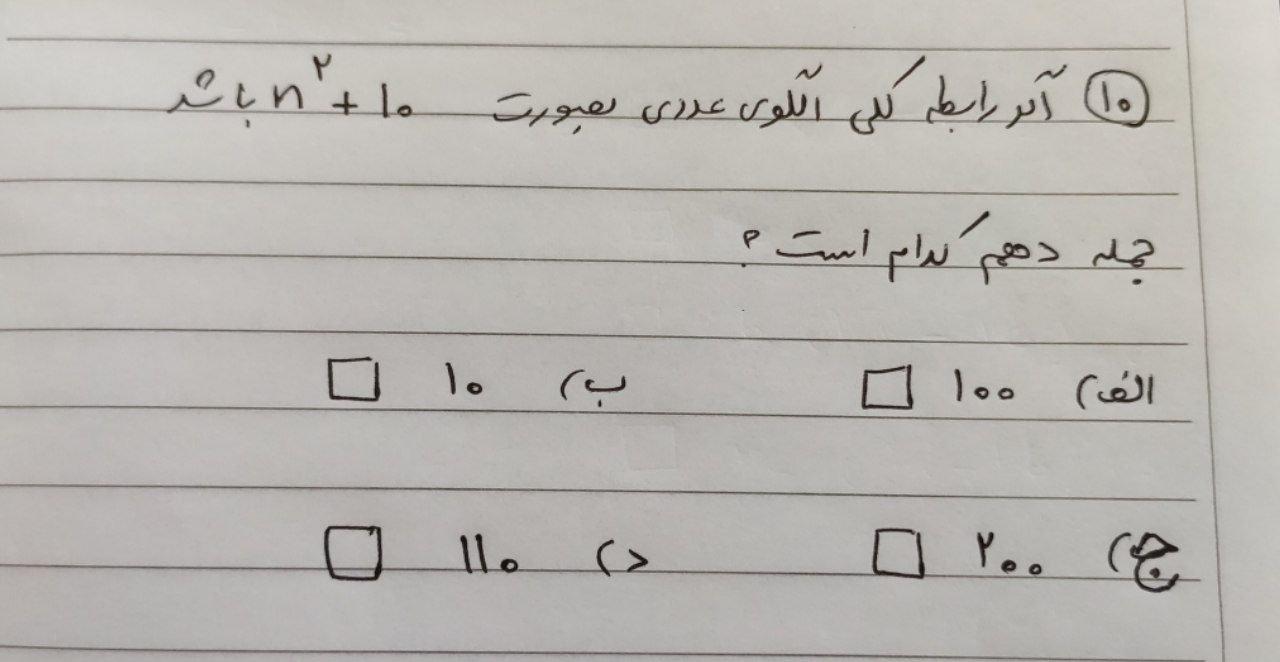 ۱۰ اگر رابطه کلی الگوی عددی بصورت n² + ۱۰ باشد
جمله دهم کدام است؟
الف) ۱۰۰ □ ب) ۱۰ □
ج) ۲۰۰ □ د) ۱۱۰ □